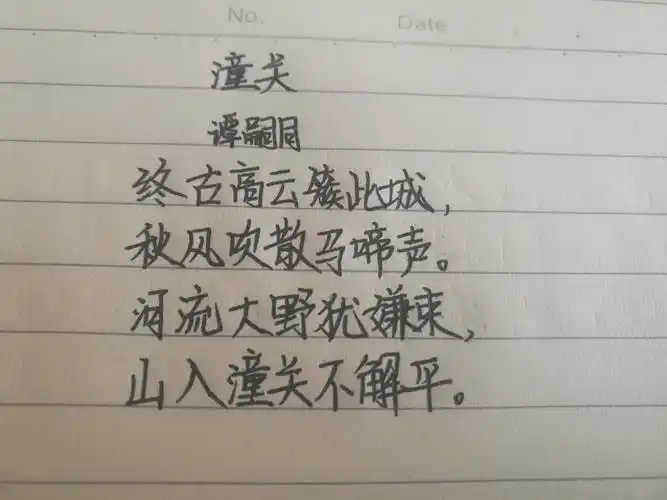 No. Date
潼关
谭嗣同
终古高云簇此城，
秋风吹散马啼声。
河流大野犹嫌束，
山入潼关不解平。